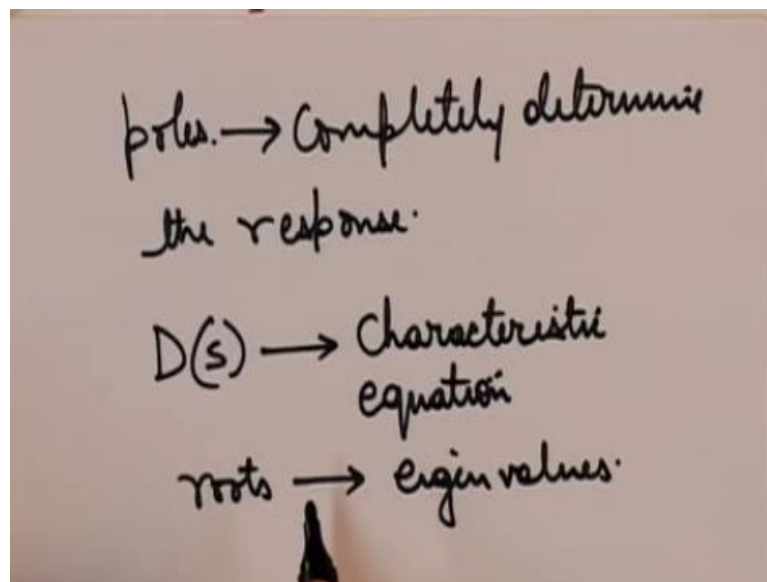 poles. → Completely determine
the response.
D(s) → Characteristic
equation
roots → eigen values.